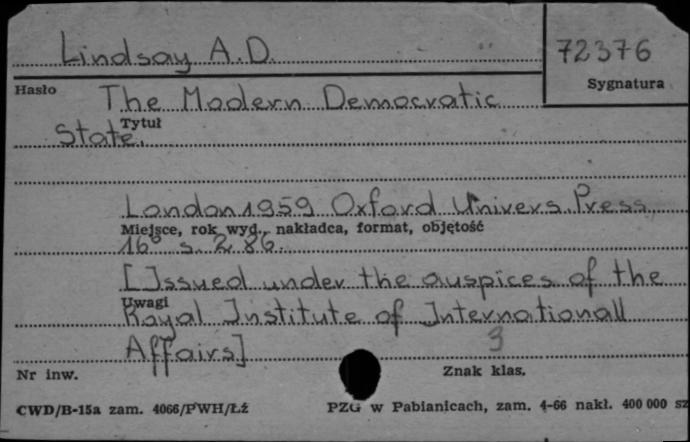 Lindsay A.D. 72376
Hasło Sygnatura
The Modern Democratic
Tytuł
State.
London 1959 Oxford Univers. Press
Miejsce, rok wyd., nakładca, format, objętość
16° s. 286.
[Issued under the auspices of the
Uwagi
Royal Institute of Internationall
Affairs] 3
Nr inw. Znak klas.
CWD/B-15a zam. 4066/PWH/Łź PZG w Pabianicach, zam. 4-66 nakł. 400 000 sz